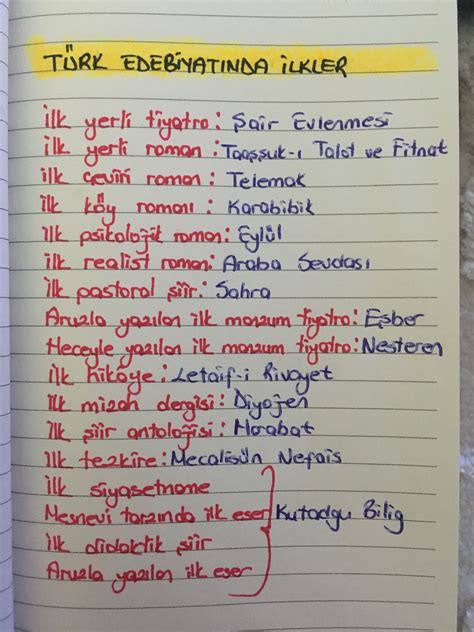 TÜRK EDEBİYATINDA İLKLER
İlk yerli tiyatro: Şair Evlenmesi
İlk yerli roman: Taaşşuk-ı Talat ve Fitnat
İlk çeviri roman: Telemak
İlk köy romanı: Karabibik
İlk psikolojik roman: Eylül
İlk realist roman: Araba Sevdası
İlk pastoral şiir: Sahra
Aruzla yazılan ilk manzum tiyatro: Eşber
Heceyle yazılan ilk manzum tiyatro: Nesteren
İlk hikâye: Letaif-i Rivayet
İlk mizah dergisi: Diyojen
İlk şiir antolojisi: Harabat
İlk tezkire: Mecalisün Nefais
İlk siyasetname
Mesnevi tarzında ilk eser Kutadgu Bilig
İlk didaktik şiir
Aruzla yazılan ilk eser